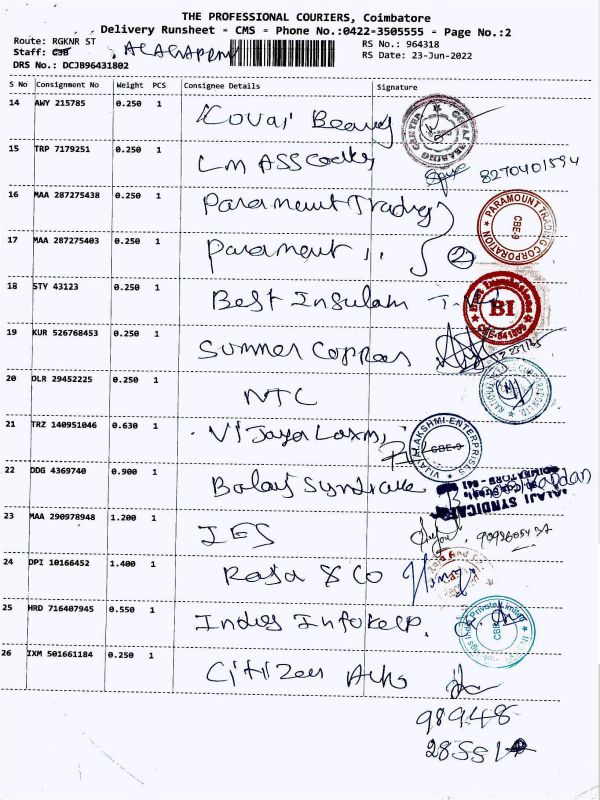 THE PROFESSIONAL COURIERS, Coimbatore
Delivery Runsheet - CMS - Phone No.:0422-3505555 - Page No.:2
Route: RGKNR ST RS No.: 964318
Staff: CJB RS Date: 23-Jun-2022
DRS No.: DCJB96431802
S No Consignment No Weight PCS Consignee Details Signature
14 AWY 215785 0.250 1 Kovai Bearing
15 TRP 7179251 0.250 1 LM
8270401594
16 MAA 287275438 0.250 1 Paramount Trading
PARAMOUNT TRADING CORPORATION CBE-9
17 MAA 287275403 0.250 1 Paramount ,, 2
18 STY 43123 0.250 1 Best Insulam
BI
19 KUR 526768453 0.250 1 Summer Coppers
20 DLR 29452225 0.250 1 NTC
21 TRZ 140951046 0.630 1 Vijaya Laxmi
VIJAYALAKSHMI-ENTERPRISES CBE-9
22 DDG 4369740 0.900 1 Balaji Syndicate
BALAJI SYNDICATE
23 MAA 290978948 1.200 1 IES
24 DPI 10166452 1.400 1 Raja & Co
25 HRD 716407945 0.550 1 Indus
26 IXM 501661184 0.250 1 Citizen
98948